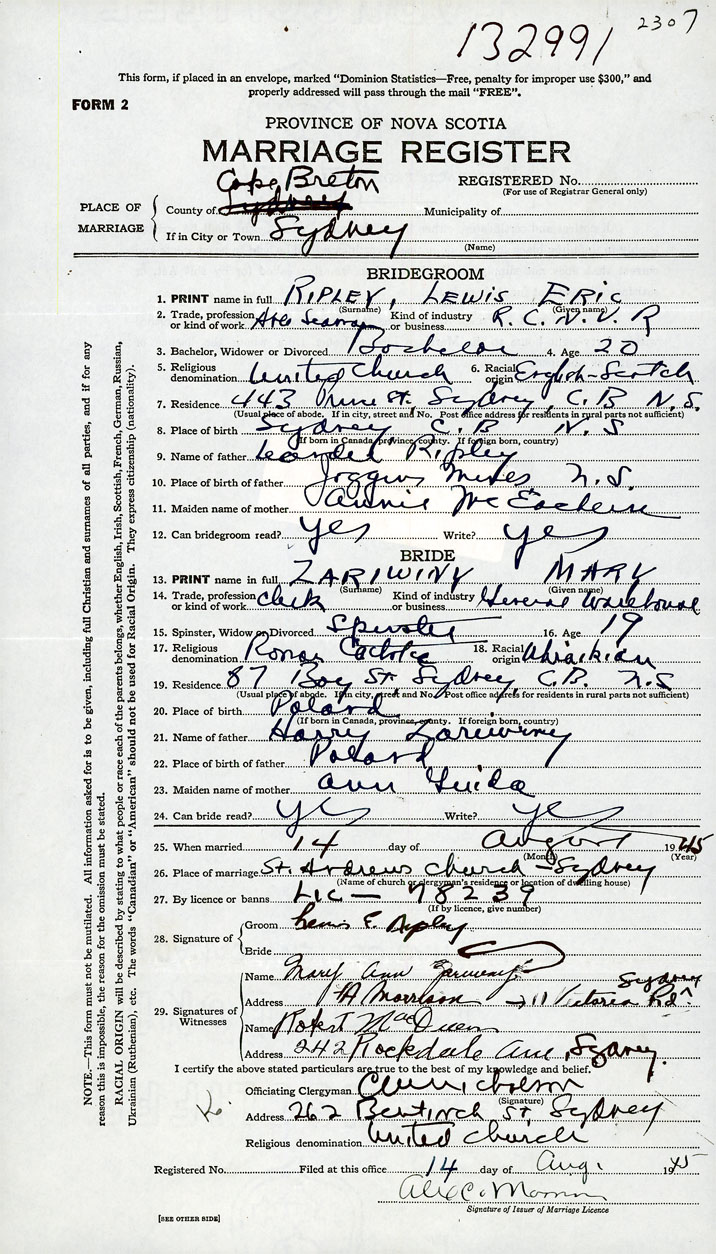 132991 2307
This form, if placed in an envelope, marked "Dominion Statistics—Free, penalty for improper use $300," and
properly addressed will pass through the mail "FREE".
FORM 2
PROVINCE OF NOVA SCOTIA
MARRIAGE REGISTER
Cape Breton
REGISTERED No.
(For use of Registrar General only)
PLACE OF MARRIAGE
County of Sydney Municipality of
If in City or Town Sydney
(Name)
BRIDEGROOM
1. PRINT name in full RIPLEY, LEWIS ERIC
(Surname) (Given name)
2. Trade, profession or kind of work Able Seaman Kind of industry or business R. C. N. V. R
3. Bachelor, Widower or Divorced Bachelor 4. Age 20
5. Religious denomination United Church 6. Racial origin English-Scotch
7. Residence 443 St, Sydney, C.B N.S.
(Usual place of abode. If in city, street and No. Post office address for residents in rural parts not sufficient)
8. Place of birth Sydney C.B. N.S
(If born in Canada, province, county. If foreign born, country)
9. Name of father Leander Ripley
10. Place of birth of father Joggins Mines N.S.
11. Maiden name of mother Annie McEachern
12. Can bridegroom read? yes Write? yes
BRIDE
13. PRINT name in full ZARIWINY MARY
(Surname) (Given name)
14. Trade, profession or kind of work clerk Kind of industry or business General Warehouse
15. Spinster, Widow or Divorced Spinster 16. Age 19
17. Religious denomination Roman Catholic 18. Racial origin
19. Residence 87 Bay St Sydney, C.B. N.S
(Usual place of abode. If in city, street and No. Post office address for residents in rural parts not sufficient)
20. Place of birth Poland
(If born in Canada, province, county. If foreign born, country)
21. Name of father Harry Zarewiny
22. Place of birth of father Poland
23. Maiden name of mother Ann Guida
24. Can bride read? yes Write? yes
25. When married 14 day of August 1945
(Month) (Year)
26. Place of marriage St. Andrews Church - Sydney
(Name of church or clergyman's residence or location of dwelling house)
27. By licence or banns LIC — 78239
(If by licence, give number)
28. Signature of
Groom Lewis E. Ripley
Bride
29. Signatures of Witnesses
Name Mary Ann
Sydney
Address Morrison 11 Victoria Rd
Name Robert
Address 242 Rockdale Ave, Sydney.
I certify the above stated particulars are true to the best of my knowledge and belief.
Officiating Clergyman Nicholson
(Signature)
Address 262 Bentinck St Sydney
Religious denomination United Church
Registered No. Filed at this office 14 day of Aug. 1945
Alex C.
Signature of Issuer of Marriage Licence
[SEE OTHER SIDE]
NOTE.—This form must not be mutilated. All information asked for is to be given, including full Christian and surnames of all parties, and if for any
reason this is impossible, the reason for the omission must be stated.
RACIAL ORIGIN will be described by stating to what people or race each of the parents belongs, whether English, Irish, Scottish, French, German, Russian,
Ukrainian (Ruthenian), etc. The words "Canadian" or "American" should not be used for Racial Origin. They express citizenship (nationality).